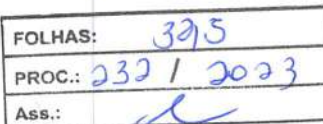 FOLHAS: 325
PROC.: 232 / 2023
Ass.: